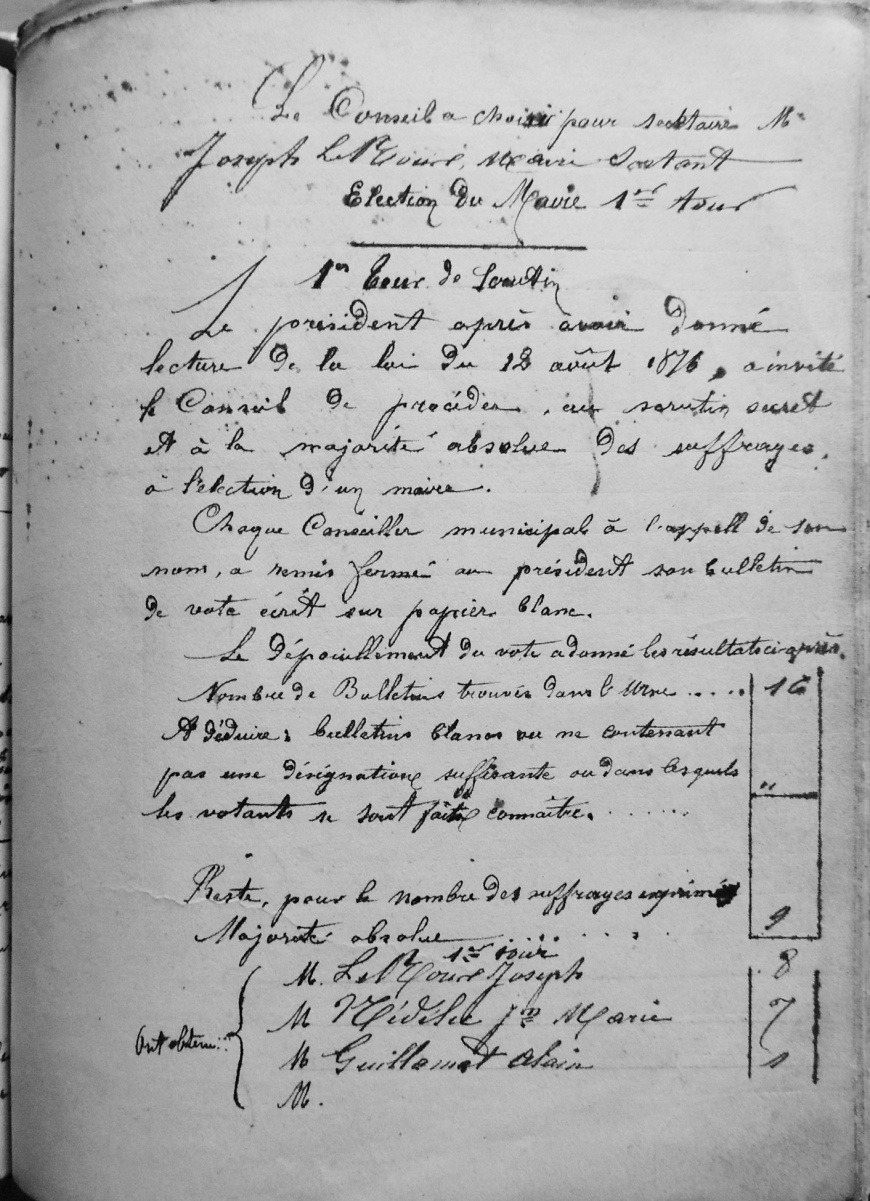 Le Conseil a choisi pour secrétaire Mr
Joseph Le Maire Sortant
Election du Maire 1er tour
1er tour de Scrutin
Le président après avoir donné
lecture de la loi du 12 août 1876, a invité
le Conseil de procéder, au scrutin secret
et à la majorité absolue des suffrages,
à l'élection d'un maire.
Chaque Conseiller municipal à l'appell de son
nom, a remis fermé au président son bulletin
de vote écrit sur papier blanc.
Le dépouillement du vote a donné les résultats ci-après.
Nombre de Bulletins trouvés dans l'Urne .... 16
A déduire: bulletins blancs ou ne contenant
pas une désignation suffisante ou dans lesquels
les votants se sont faits connaître. ...... "
Reste, pour le nombre des suffrages exprimés
Majorité absolue ..... 9
1er tour
M. Joseph 8
M Jn Marie 7
M Guillemot Alain 1
M.
Ont obtenu: